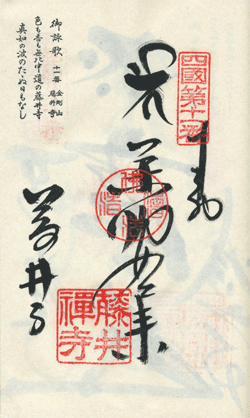 四國第十一番
奉納
薬師如来
藤井寺
藤井
禪寺
御詠歌 十一番 金剛山 藤井寺
色も香も無比中道の藤井寺
真如の波のたゝぬ日もなし